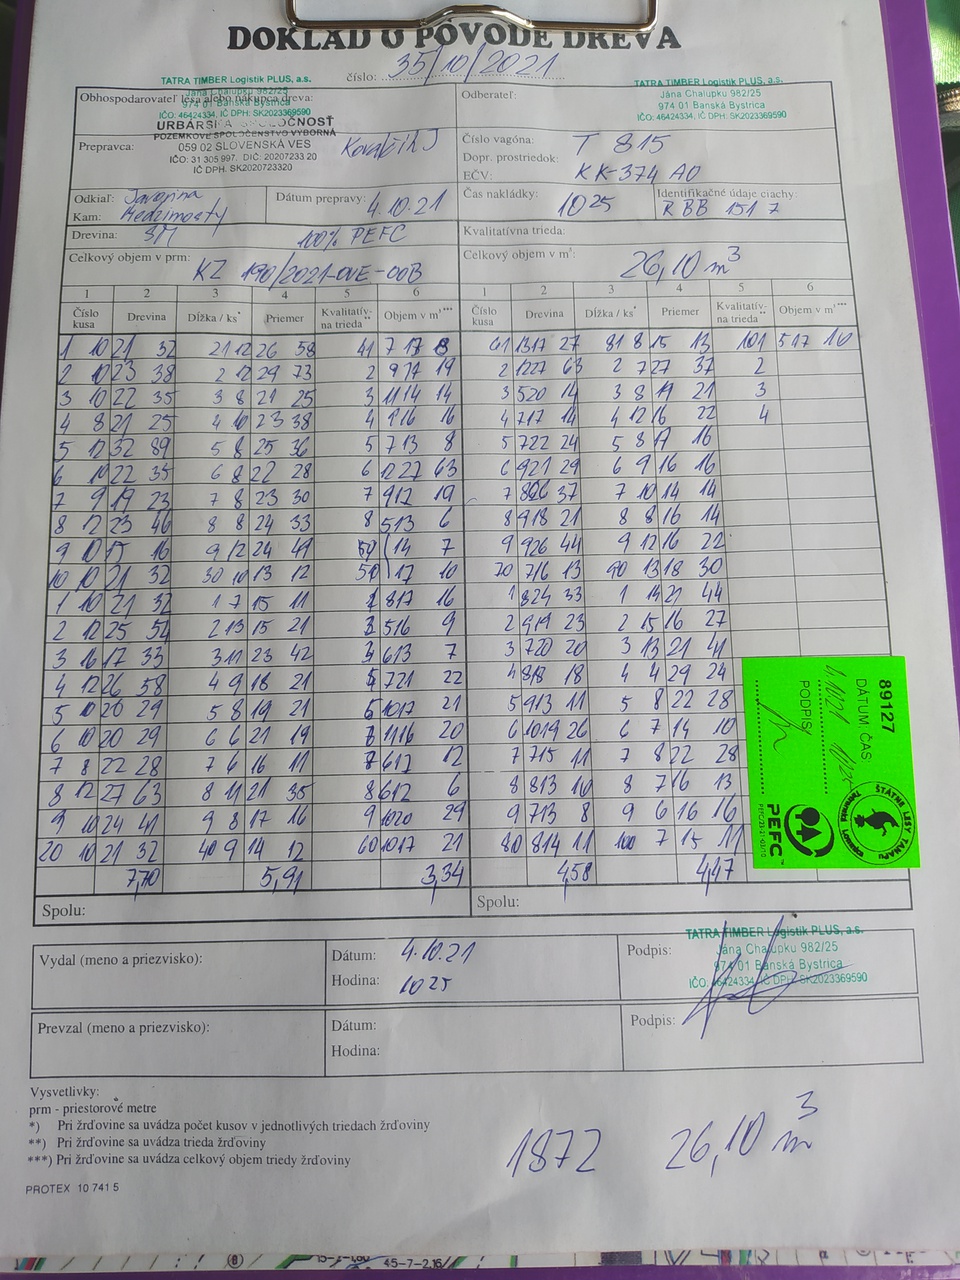 DOKLAD O PÔVODE DREVA
číslo: 35/10/2021
TATRA TIMBER Logistik PLUS, a.s.
Jána Chalupku 982/25
974 01 Banská Bystrica
IČO: 46424334, IČ DPH: SK2023369590
Obhospodarovateľ lesa alebo nákupca dreva:
URBÁRSKA SPOLOČNOSŤ
POZEMKOVÉ SPOLOČENSTVO VÝBORNÁ
059 02 SLOVENSKÁ VES
IČO: 31 305 997, DIČ: 20207233 20
IČ DPH: SK2020723320
Prepravca:
Odberateľ:
TATRA TIMBER Logistik PLUS, a.s.
Jána Chalupku 982/25
974 01 Banská Bystrica
IČO: 46424334, IČ DPH: SK2023369590
Číslo vagóna: T 815
Dopr. prostriedok:
EČV: KK-374 AO
Odkiaľ: Javorina
Kam: Medzimosty
Dátum prepravy: 4.10.21
Čas nakládky: 10 25
Identifikačné údaje ciachy:
R BB 151 7
Drevina: SM 100% PEFC
Kvalitatívna trieda:
Celkový objem v prm: KZ 190/2021-OVE-OOB
Celkový objem v m³: 26,10 m³
1 2 3 4 5 6 1 2 3 4 5 6
Číslo kusa Drevina Dĺžka / ks* Priemer Kvalitatív- na trieda** Objem v m³*** Číslo kusa Drevina Dĺžka / ks* Priemer Kvalitatív- na trieda** Objem v m³***
1 10 21 32 21 12 26 58 41 7 17 8 61 13 17 27 81 8 15 13 101 5 17 10
2 10 23 38 2 12 29 73 2 9 17 19 2 12 27 63 2 7 27 37 2
3 10 22 35 3 8 21 25 3 11 14 14 3 5 20 14 3 8 19 21 3
4 8 21 25 4 10 23 38 4 16 16 4 7 17 14 4 12 16 22 4
5 12 32 89 5 8 25 36 5 7 13 8 5 7 22 24 5 8 17 16
6 10 22 35 6 8 22 28 6 12 27 63 6 9 21 29 6 9 16 16
7 9 19 23 7 8 23 30 7 9 17 19 7 8 26 37 7 10 14 14
8 12 23 46 8 8 24 33 8 5 13 6 8 9 18 21 8 8 16 14
9 10 15 16 9 12 24 49 14 7 9 9 26 44 9 12 16 22
10 10 21 32 30 10 13 12 50 17 10 70 7 16 13 90 13 18 30
1 10 21 32 1 7 15 11 8 17 16 1 8 24 33 1 14 21 44
2 12 25 54 2 13 15 21 5 16 9 2 9 19 23 2 15 16 27
3 16 17 33 3 11 23 42 6 13 7 3 7 20 20 3 13 21 41
4 12 26 58 4 9 18 21 7 21 22 4 8 18 18 4 4 29 24
5 10 20 29 5 8 19 21 10 17 21 5 9 13 11 5 8 22 28
6 10 20 29 6 6 21 19 11 16 20 6 10 19 26 6 7 14 10
7 8 22 28 7 6 16 11 6 17 12 7 7 15 11 7 8 22 28
8 12 27 63 8 11 21 35 8 6 12 6 8 8 13 10 8 7 16 13
9 10 24 41 9 8 17 16 9 10 20 29 9 7 13 8 9 6 16 16
20 10 21 32 40 9 14 12 60 10 17 21 80 8 14 11 100 7 15 11
7,70 5,91 3,34 4,58 4,47
Spolu: Spolu:
89127
DÁTUM ČAS:
4.10.21
PODPIS:
ŠTÁTNE LESY TANAPu
Tatranská Lomnica
PEFC
Vydal (meno a priezvisko):
Dátum: 4.10.21
Hodina: 10 25
Podpis:
TATRA TIMBER Logistik PLUS, a.s.
Jána Chalupku 982/25
974 01 Banská Bystrica
IČO: 46424334, IČ DPH: SK2023369590
Prevzal (meno a priezvisko):
Dátum:
Hodina:
Podpis:
Vysvetlivky:
prm - priestorové metre
*) Pri žrďovine sa uvádza počet kusov v jednotlivých triedach žrďoviny
**) Pri žrďovine sa uvádza trieda žrďoviny
***) Pri žrďovine sa uvádza celkový objem triedy žrďoviny
1872 26,10 m³
PROTEX 10 741 5
45-7-2,16